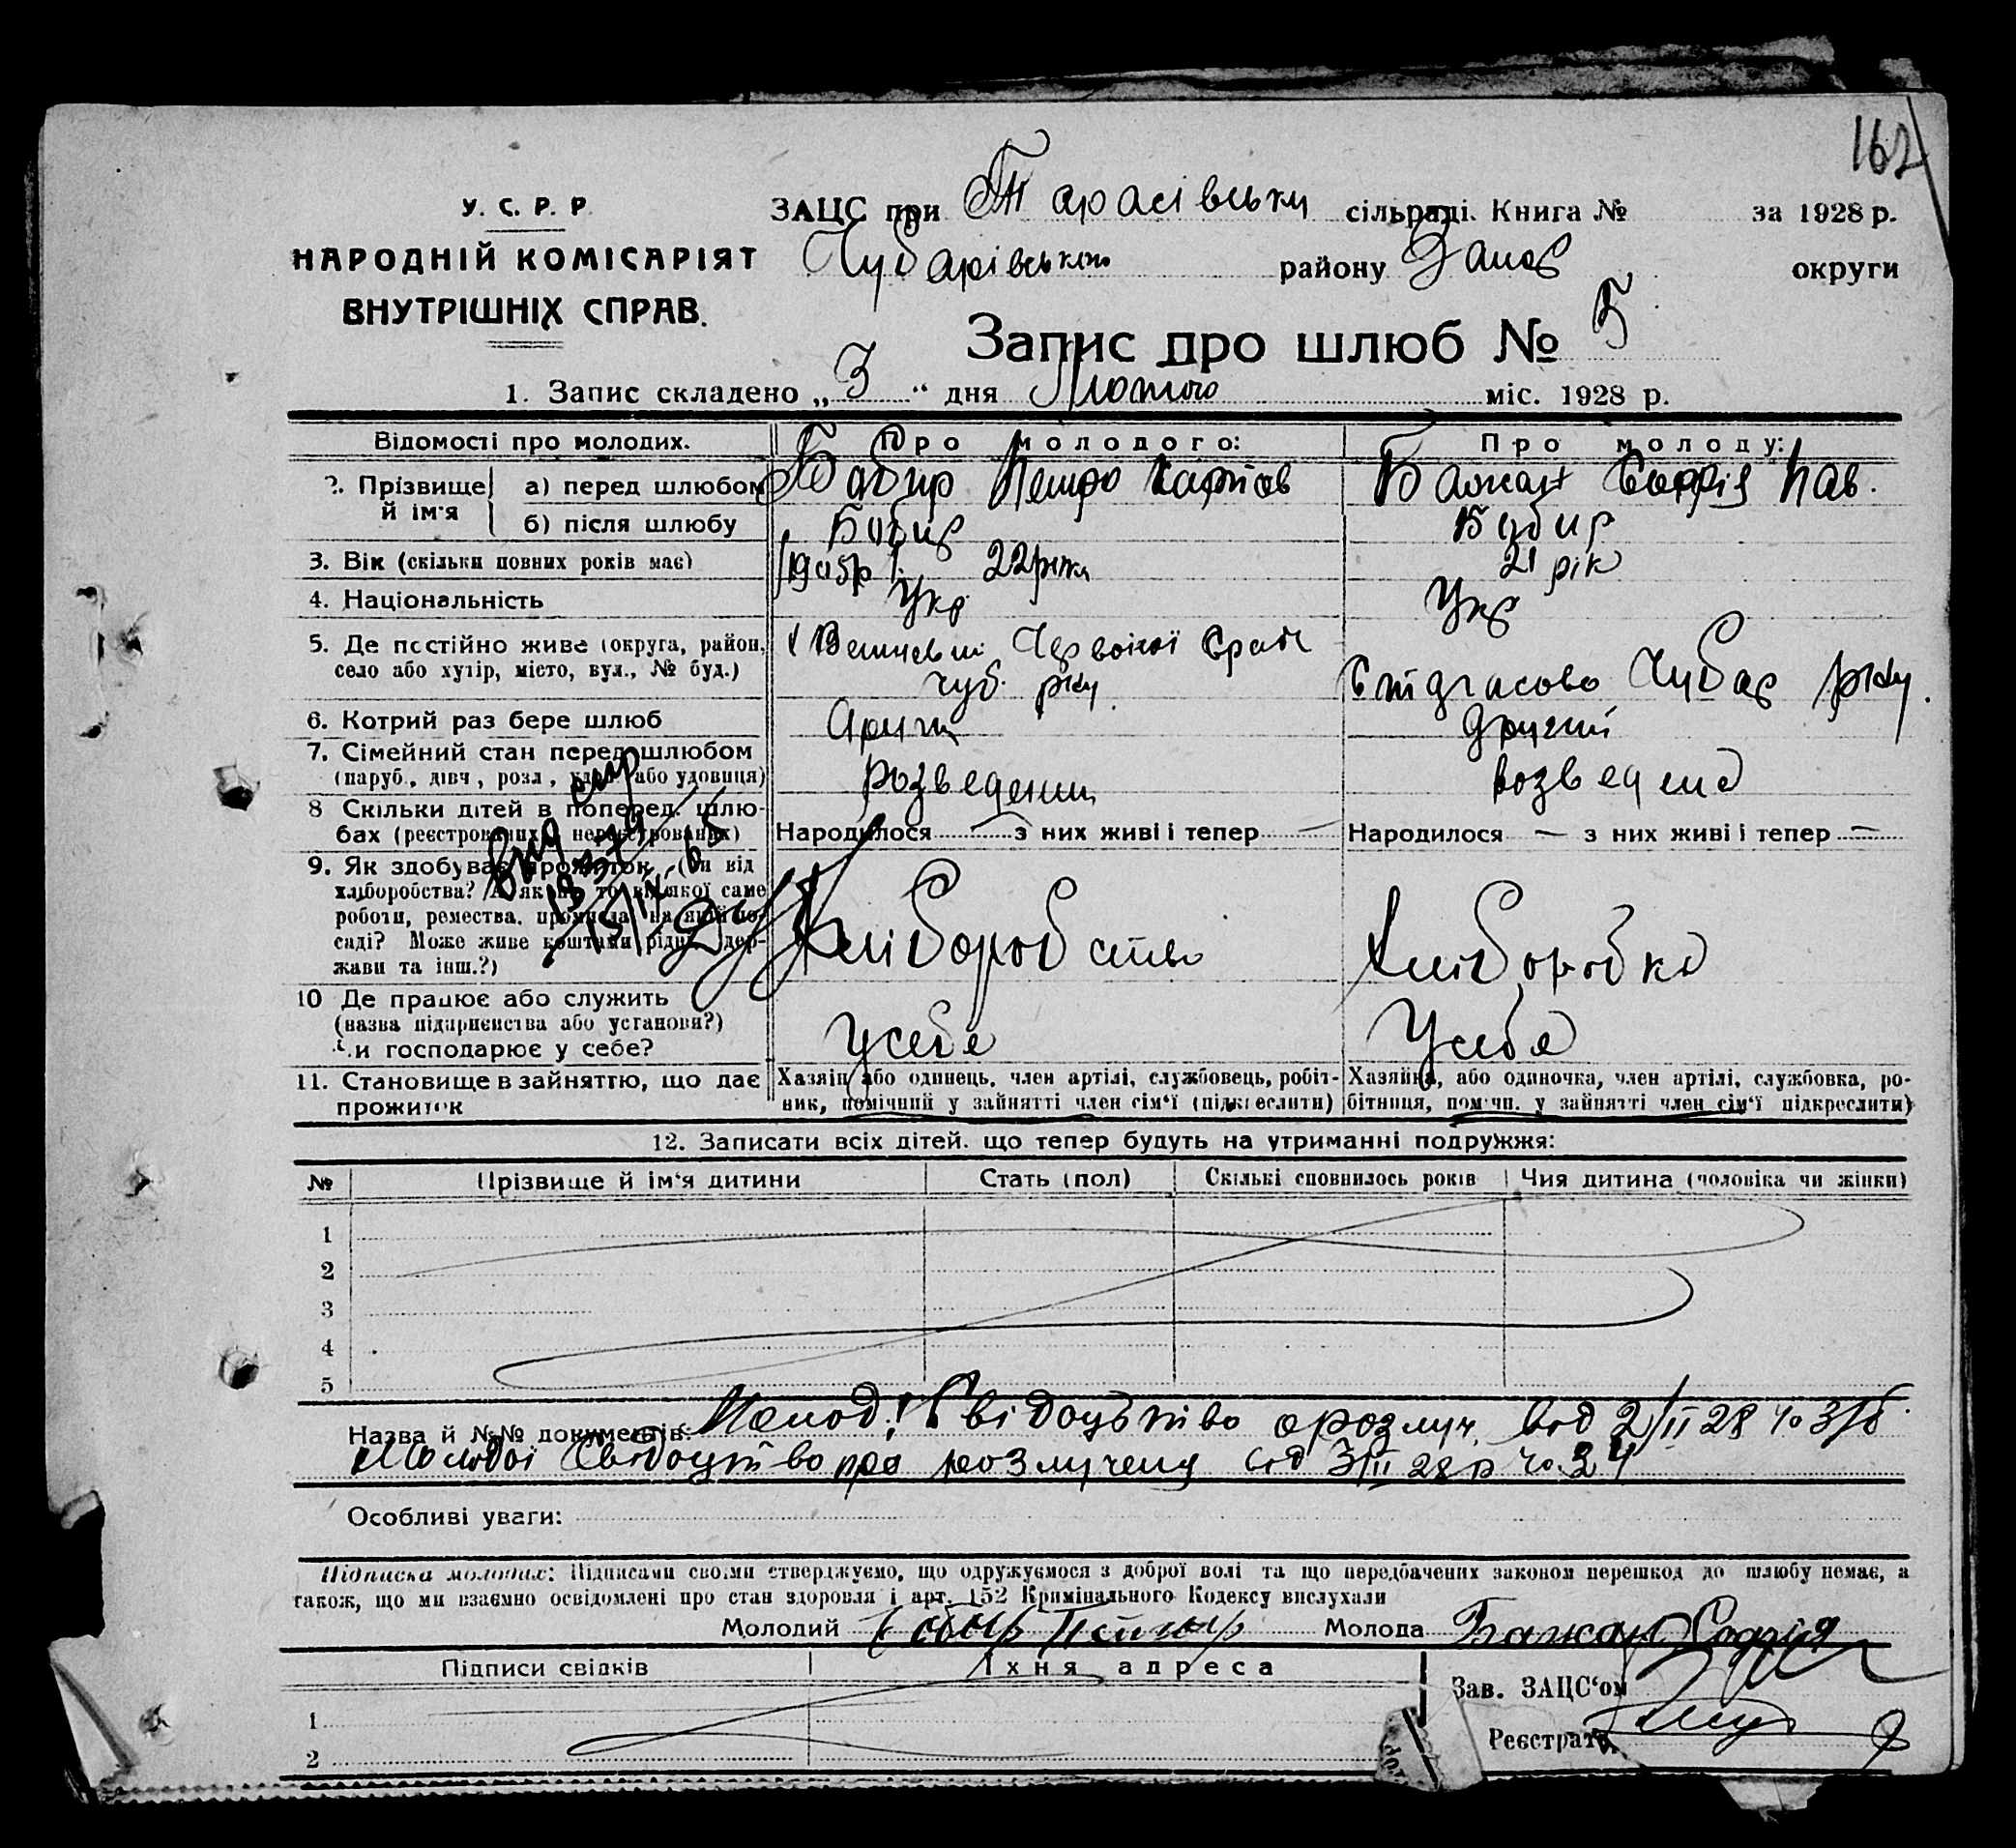 162
У. С. Р. Р.
НАРОДНІЙ КОМІСАРІЯТ
ВНУТРІШНІХ СПРАВ.
ЗАЦС при Тарасівськ сільраді. Книга № за 1928 р.
Чубарівського району Запор округи
Запис про шлюб № 5
1. Запис складено „3“ дня Лютого міс. 1928 р.
Відомості про молодих. Про молодого: Про молоду:
2. Прізвище й ім'я
а) перед шлюбом Бабир Петро Бажан Софія Пав.
б) після шлюбу Бабир Бабир
3. Вік (скільки повних років має) 22 роки 21 рік
4. Національність Укр Укр
5. Де постійно живе (округа, район,
село або хутір, місто, вул., № буд.)
Чуб. р-ну Чубар р-ну.
6. Котрий раз бере шлюб другий
7. Сімейний стан перед шлюбом
(паруб., дівч., розл., удов. або удовиця)
розведений розведена
8 Скільки дітей в поперед. шлю-
бах (реєстрованих й нереєстрованих)
Народилося — з них живі і тепер — Народилося — з них живі і тепер —
9. Як здобуває прожиток (чи від
хліборобства? А як ні, то від якої саме
роботи, ремества, промисла, на якій по-
саді? Може живе коштами рідні, дер-
жави та інш.?)
Хліборобство Хліборобка
10 Де працює або служить
(назва підприємства або установи?)
Чи господарює у себе?
У себе У себе
11. Становище в зайняттю, що дає
прожиток
Хазяїн або одинець, член артілі, службовець, робіт-
ник, помічний у зайнятті член сім'ї (підкреслити)
Хазяйка, або одиночка, член артілі, службовка, ро-
бітниця, помічн. у зайнятті член сім'ї підкреслити)
12. Записати всіх дітей, що тепер будуть на утриманні подружжя:
№ Прізвище й ім'я дитини Стать (пол) Скількі сповнилось років Чия дитина (чоловіка чи жінки)
1
2
3
4
5
Назва й №№ документів: Молод. Свідоцтво о розлуч. від 2/II 28
Молодої Свідоцтво про розлучену від 3/II 28 р чо. 34
Особливі уваги:
Підписка молодих: Підписами своїми стверджуємо, що одружуємося з доброї волі та що передбачених законом перешкод до шлюбу немає, а
також, що ми взаємно освідомлені про стан здоровля і арт. 152 Кримінального Кодексу вислухали
Молодий Бабир Петр Молода Бажан Софія
Підписи свідків Їхня адреса
Зав. ЗАЦС'ом
1
Реєстрат
2